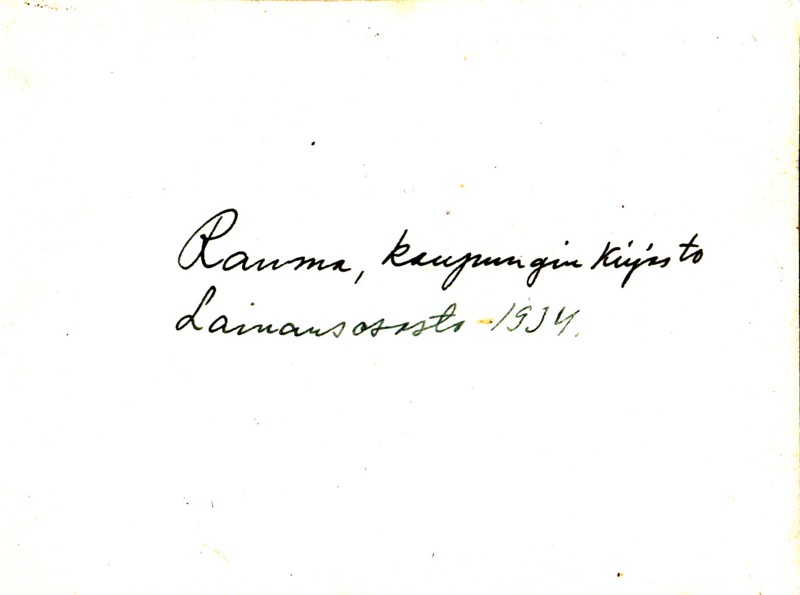 Rauma, kaupungin kirjasto
Lainausosasto -1934.